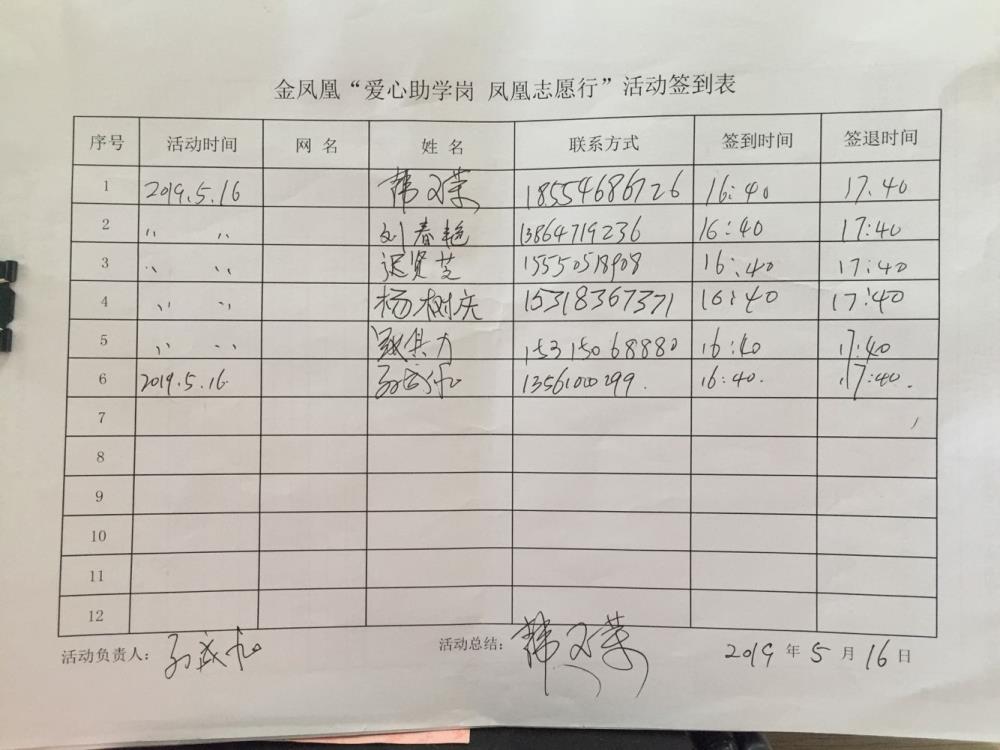 金凤凰“爱心助学岗 凤凰志愿行”活动签到表
序号 活动时间 网 名 姓 名 联系方式 签到时间 签退时间
1 2019.5.16 韩文荣 18554686726 16:40 17.40
2 〃 〃 刘春艳 13864719236 16:40 17:40
3 〃 〃 迟贤芝 15550518908 16:40 17:40
4 〃 〃 杨树庆 15318367371 16:40 17:40
5 〃 〃 集力 15315068880 16:40 17:40
6 2019.5.16 孙成 13561000299. 16:40. 17:40.
7
8
9
10
11
12
活动负责人: 孙成 活动总结: 韩文荣 2019 年 5 月 16 日